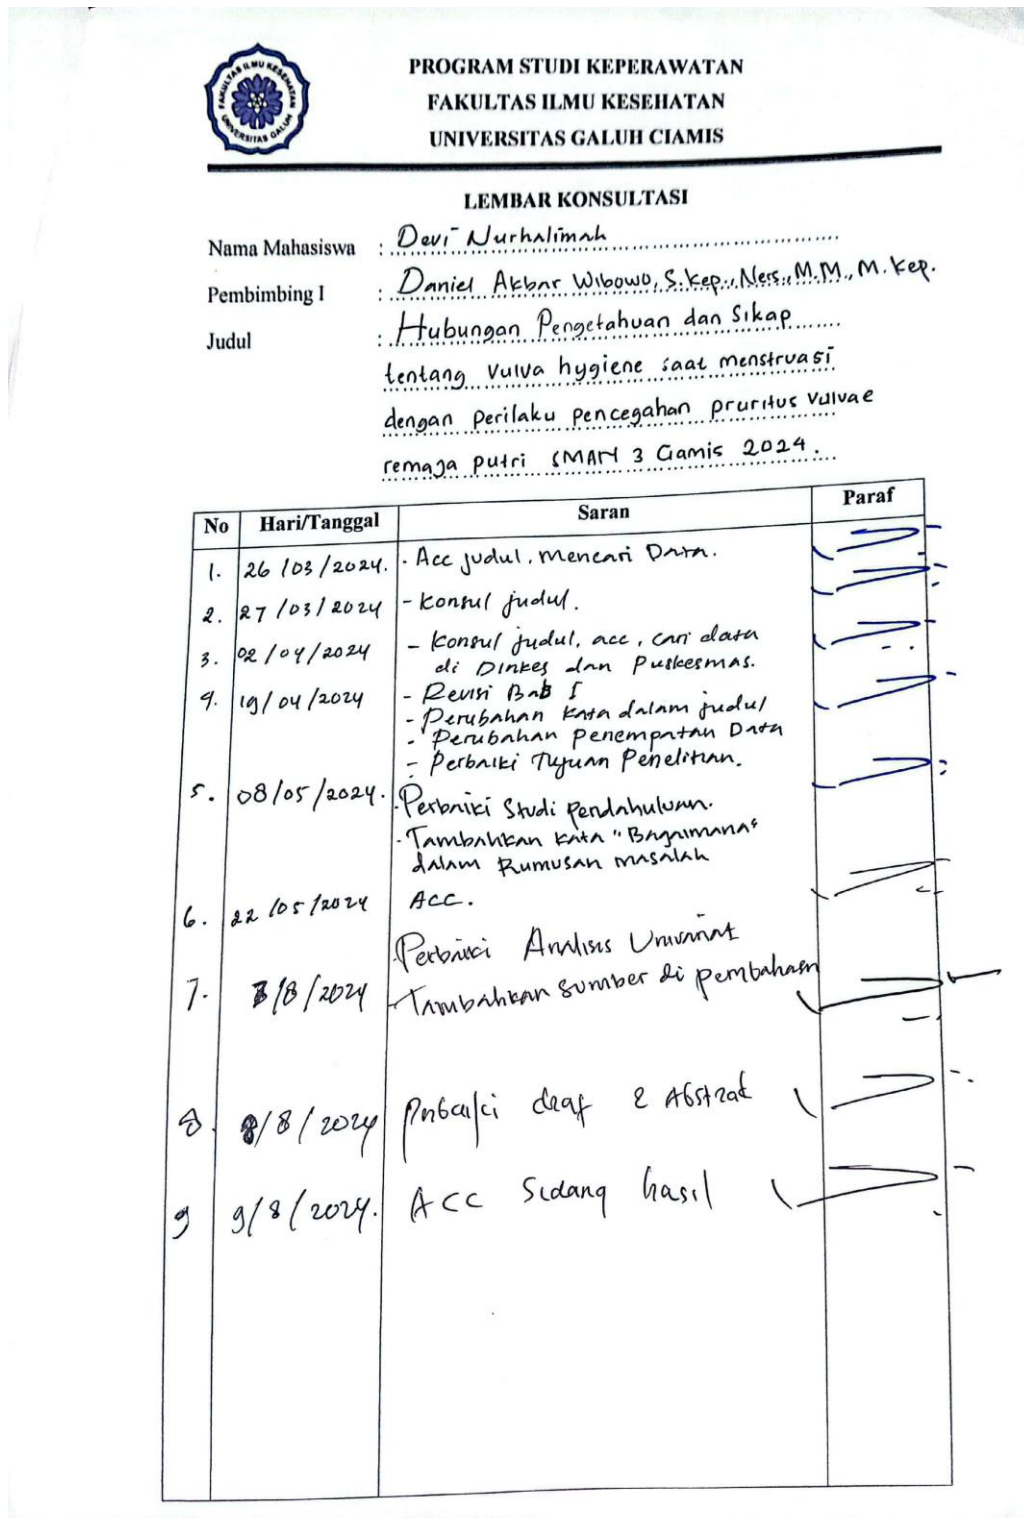 FAKULTAS ILMU KESEHATAN
UNIVERSITAS GALUH
PROGRAM STUDI KEPERAWATAN
FAKULTAS ILMU KESEHATAN
UNIVERSITAS GALUH CIAMIS
LEMBAR KONSULTASI
Nama Mahasiswa : Devi Nurhalimah
Pembimbing I : Daniel Akbar Wibowo, S.Kep., Ners., M.M., M.Kep.
Judul : Hubungan Pengetahuan dan Sikap
tentang Vulva hygiene saat menstruasi
dengan perilaku pencegahan pruritus vulvae
remaja putri SMAN 3 Ciamis 2024.
No Hari/Tanggal Saran Paraf
1. 26/03/2024. - Acc judul, mencari Data.
2. 27/03/2024 - Konsul judul.
3. 02/04/2024 - Konsul judul, acc, cari data
di Dinkes dan Puskesmas.
4. 19/04/2024 - Revisi Bab I
- Perubahan kata dalam judul
- Perubahan Penempatan Data
- Perbaiki Tujuan Penelitian.
5. 08/05/2024. - Perbaiki Studi pendahuluan.
- Tambahkan kata "Bagaimana"
dalam Rumusan masalah
6. 22/05/2024 ACC.
- Perbaiki Analisis Univariat
7. /8/2024 - Tambahkan sumber di pembahasan
8. 8/8/2024 Perbaiki draf & Abstrak
9 9/8/2024. ACC Sidang hasil